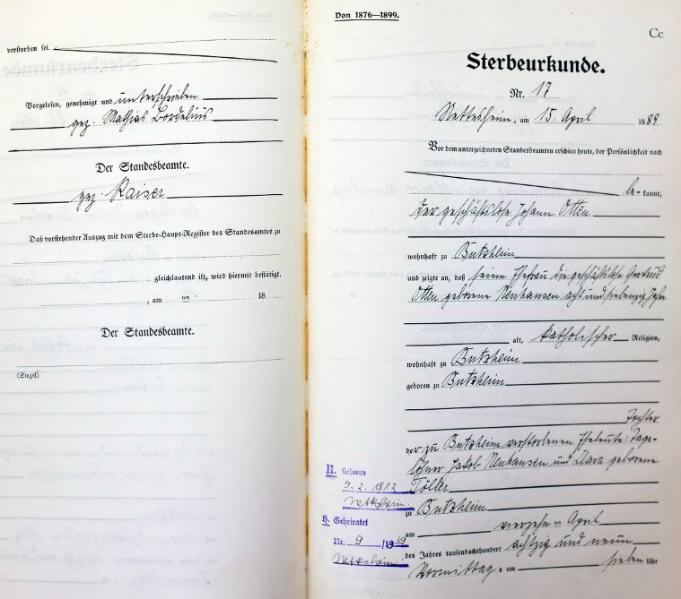 verstorben sei.
Vorgelesen, genehmigt und unterschrieben
gez. Mathias Bordelius
Der Standesbeamte.
gez. Kaiser
Daß vorstehender Auszug mit dem Sterbe-Haupt-Register des Standesamtes zu
gleichlautend ist, wird hiermit bestätigt.
, am ten 18
Der Standesbeamte.
(Siegel)
Von 1876—1899.
Cc
Sterbeurkunde.
Nr. 17
Nettesheim, am 15. April 1889
Vor dem unterzeichneten Standesbeamten erschien heute, der Persönlichkeit nach
be- kannt,
der geschäftslose Johann Otten
wohnhaft zu Butzheim
und zeigte an, daß seine Ehefrau die geschäftslose Gertrud
Otten geborene Neuhausen acht und siebenzig Jahre
alt, katholischer Religion,
wohnhaft zu Butzheim
geboren zu Butzheim
Tochter
der zu Butzheim verstorbenen Eheleute: Tage-
löhner Jakob Neuhausen und Clara geborene
Töller
zu Butzheim
am vierzehn ten April
des Jahres tausendachthundert achtzig und neun
Vormittag s um sieben Uhr
II. Geboren
9. 2. 1812
h. Geheiratet
Nr. 9 / 1839